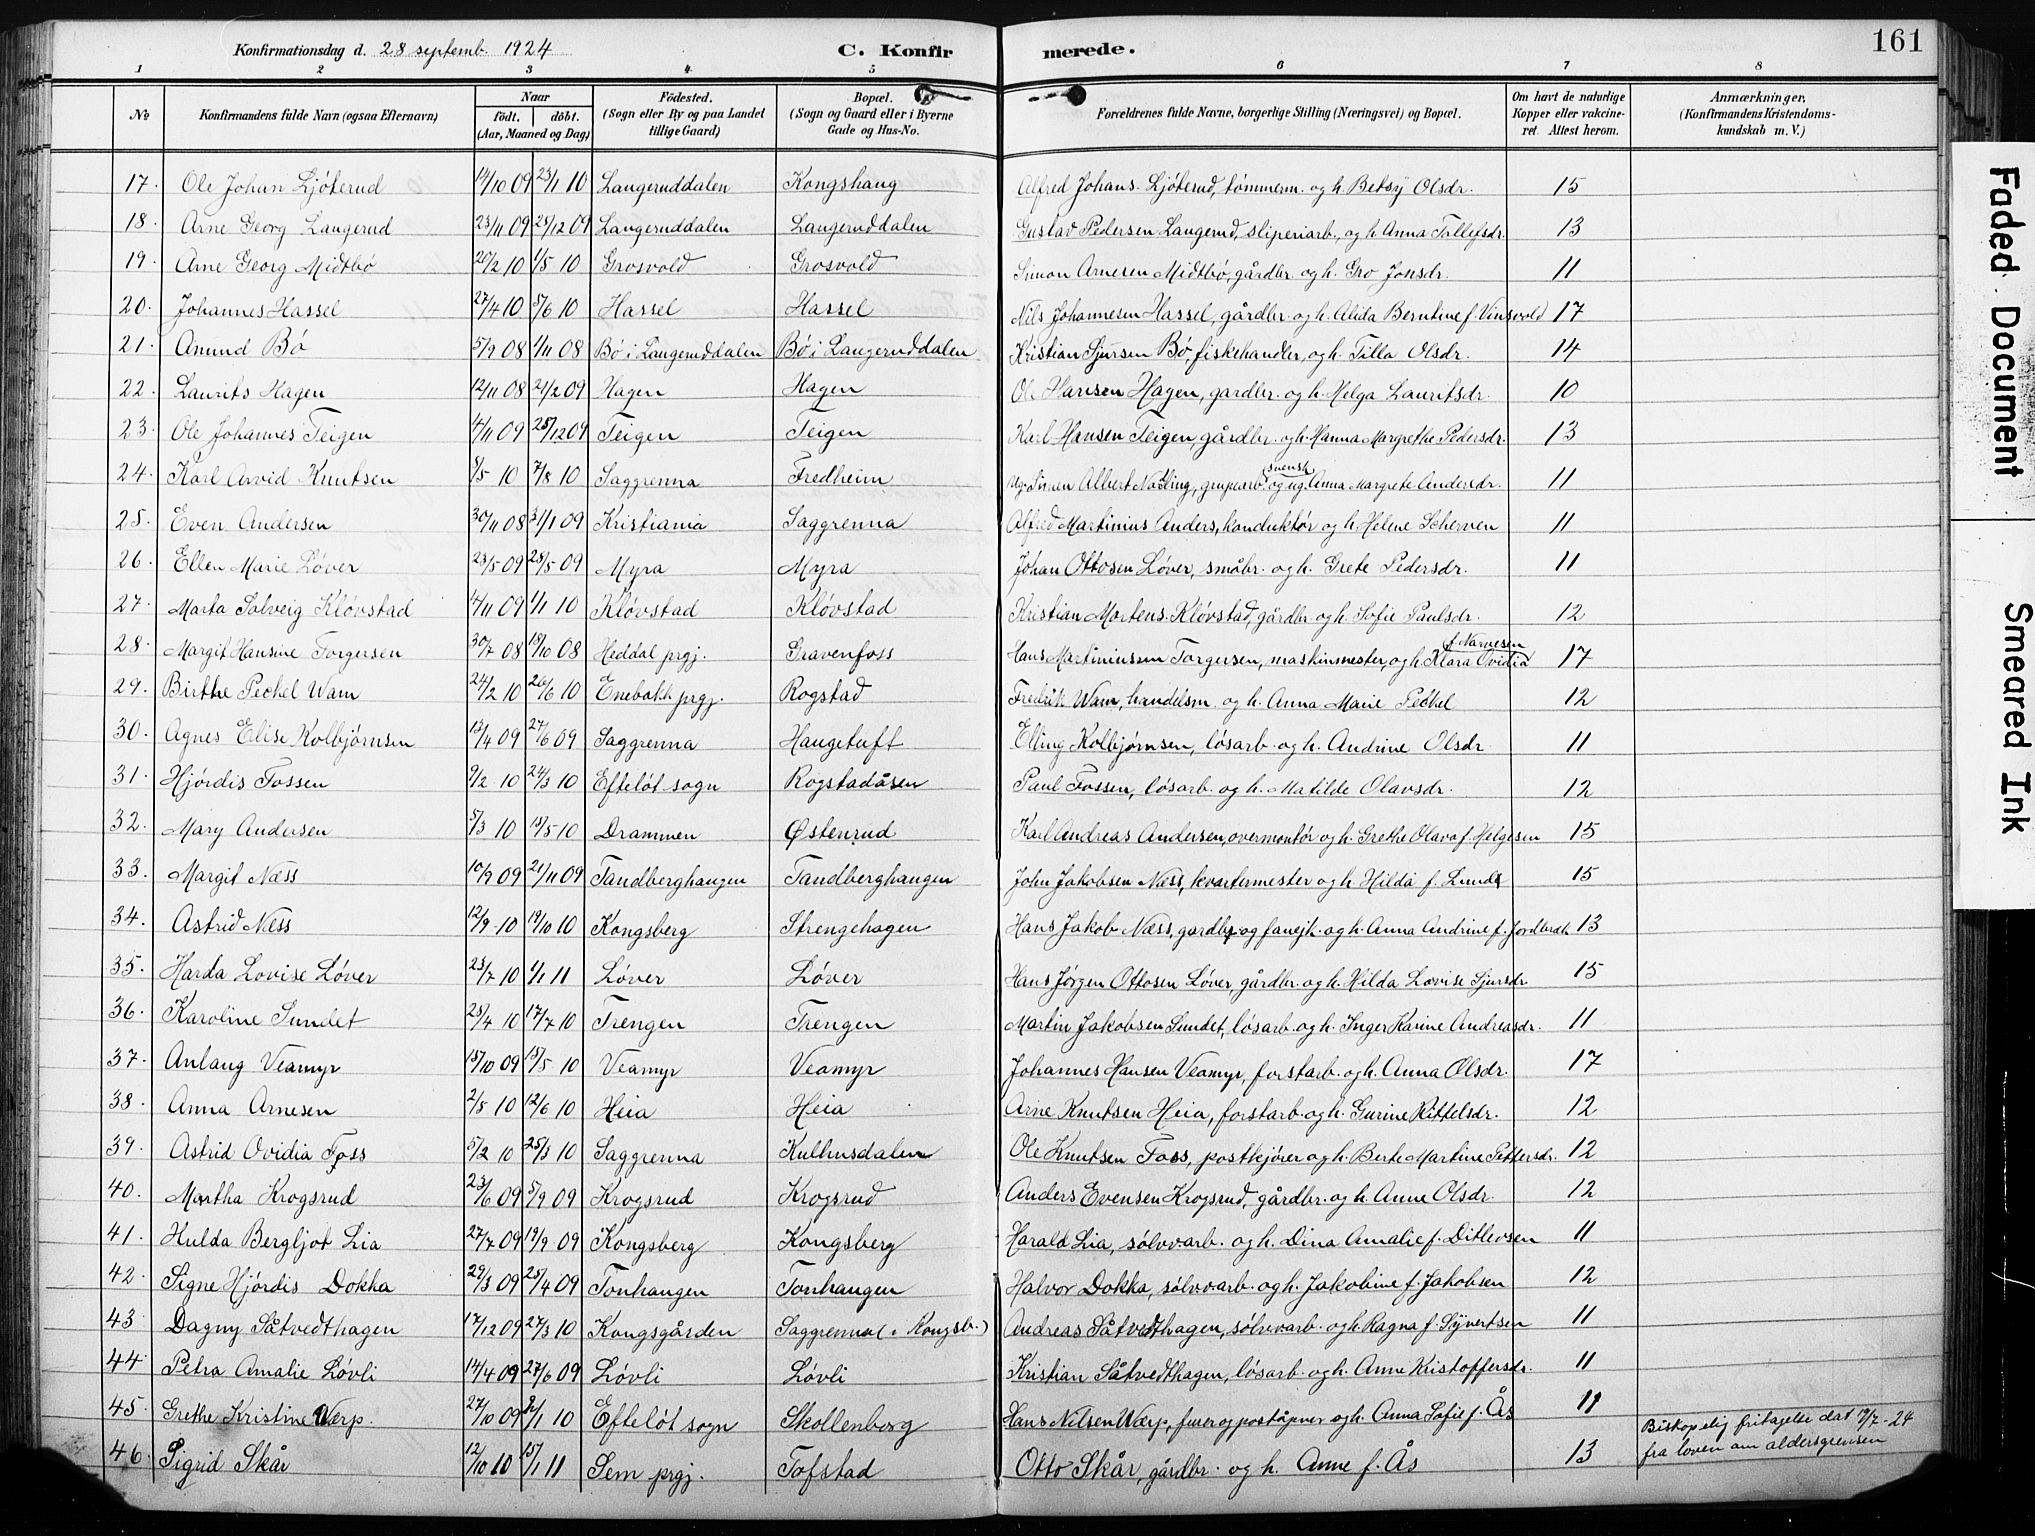 Konfirmationsdag d. 28 septemb. 1924 C. Konfirmerede. 161
1 2 3 4 5 6 7 8
No Konfirmandens fulde Navn (ogsaa Efternavn) Naar født. døbt. (Aar, Maaned og Dag) Fødested. (Sogn eller By og paa Landet tillige Gaard) Bopæl. (Sogn og Gaard eller i Byerne Gade og Hus-No. Forældrenes fulde Navne, borgerlige Stilling (Næringsvei) og Bopæl. Om havt de naturlige Kopper eller vakcineret. Attest herom. Anmærkninger. (Konfirmandens Kristendomskundskab m. V.)
17. Ole Johan Ljóterud 14/10 09 23/1 10 Langeruddalen Kongshaug Alfred Johans. Ljóterud, tómmerm. og h. Betsy Olsdr. 15
18. Arne Georg Langerud 23/11 09 25/12 09 Langeruddalen Langeruddalen Gustav Pedersen Langerud, sliperiarb., og h. Anna Tollefsdr. 13
19. Arne Georg Midtbó 20/2 10 1/5 10 Grosvold Grosvold Simon Arnesen Midtbó, gårdbr. og h. Gro Jonsdr. 11
20. Johannes Hassel 27/4 10 5/6 10 Hassel Hassel Nils Johannesen Hassel, gårdbr. og h. Alida Berntine f. Vinsvold 17
21. Anund Bó 5/9 08 1/11 08 Bó i Langeruddalen Bó i Langeruddalen Kristian Sjursen Bó, fiskehandler, og h. Tilla Olsdr. 14
22. Laurits Hagen 12/11 08 21/2 09 Hagen Hagen Ole Hansen Hagen, gardbr. og h. Helga Lauritsdr. 10
23. Ole Johannes Teigen 4/11 09 25/12 09 Teigen Teigen Karl Hansen Teigen, gårdbr. og h. Hanna Margrethe Pedersdr. 13
24. Karl Arvid Knutsen 8/5 10 7/8 10 Saggrenna Fredheim Albert grupearb. svensk og ug. Anna Margrete Andersdr. 11
25. Even Andersen 30/11 08 31/1 09 Kristiania Saggrenna Alfred Martinius Anders., konduktór og h. Helene Scherven 11
26. Ellen Marie Lóver 23/5 09 Myra Myra Johan Ottosen Lóver, småbr. og h. Grete Pedersdr. 11
27. Marta Solveig Klóvstad 4/11 09 1/1 10 Klóvstad Klóvstad Kristian Martens. Klóvstad, gårdbr. og h. Sofie Paulsdr. 12
28. Margit Hansine Torgersen 30/7 08 18/10 08 Heddal prgj. Gravenfoss Hans Martiniussen Torgersen, maskinmester, og h. Klara Ovidia f. Narvesen 17
29. Birthe Peckel Wam 24/2 10 26/6 10 Enebakk prgj. Rogstad Fredrik Wam, handelsm. og h. Anna Marie Peckel 12
30. Agnes Elise Kolbjórnsen 13/4 09 27/6 09 Saggrenna Haugetuft Elling Kolbjórnsen, lósarb. og h. Andrine Olsdr. 11
31. Hjórdis Fossen 9/2 10 24/3 10 Eftelót sogn Rogstadåsen Paul Fossen, lósarb. og h. Matilde Olavsdr. 12
32. Mary Andersen 5/3 10 15/5 10 Drammen Østenrud Karl Andreas Andersen, overmontór og h. Grethe Olava f. Helgesen 15
33. Margit Næss 10/9 09 21/11 09 Tandberghaugen Tandberghaugen John Jakobsen Næss, kvartermester og h. Hilda f. Lunde 15
34. Astrid Næss 12/9 10 19/10 10 Kongsberg Strengehagen Hans Jakob Næss, gardbr. og fanejk. og h. Anna Andrine f. Jordbræk 13
35. Harda Lovise Lóver 23/7 10 1/1 11 Lóver Lóver Hans Jórgen Ottosen Lóver, gårdbr. og h. Hilda Lovise Sjursdr. 15
36. Karoline Sundet 25/4 10 17/7 10 Trengen Trengen Martin Jakobsen Sundet, lósarb. og h. Inger Karine Andreasdr. 11
37. Anlaug Veamyr 15/10 09 15/5 10 Veamyr Veamyr Johannes Hansen Veamyr, forstarb. og h. Anna Olsdr. 17
38. Anna Arnesen 2/5 10 12/6 10 Heia Heia Arne Knutsen Heia, forstarb. og h. Gurine Kittelsdr. 12
39. Astrid Ovidia Foss 5/2 10 25/3 10 Saggrenna Kulhusdalen Ole Knutsen Foss, postkjórer og h. Berte Martine Pettersdr. 12
40. Martha Krogsrud 23/6 09 5/9 09 Krogsrud Krogsrud Anders Evensen Krogsrud, gårdbr. og h. Anne Olsdr. 12
41. Hulda Bergljot Lia 27/7 09 19/9 09 Kongsberg Kongsberg Harald Lia, sólvv.arb. og h. Dina Amalie f. Ditlevsen 11
42. Signe Hjórdis Dokka 29/3 09 25/4 09 Tonhaugen Tonhaugen Halvor Dokka, sólvv.arb. og h. Jakobine f. Jakobsen 12
43. Dagny Såtvedthagen 17/12 09 27/3 10 Kongsgården Saggrenna (i Kongsb.) Andreas Såtvedthagen, sólvv.arb. og h. Ragna f. Syvertsen 11
44. Petra Amalie Lóvli 14/4 09 27/6 09 Lóvli Lóvli Kristian Såtvedthagen, lósarb. og h. Anne Kristoffersdr. 11
45. Grethe Kristine Werp. 27/10 09 2/1 10 Eftelót sogn Skollenborg Hans Nilsen Wærp, furer og poståpner og h. Anna Sofie f. Ås 11
46. Sigrid Skår 12/10 10 15/1 11 Sem prgj. Tofstad Otto Skår, gårdbr. og h. Anne f. Ås 13 Biskopelig fritagelse dat 19/7-24 fra loven om aldersgrensen
Faded Document
Smeared Ink